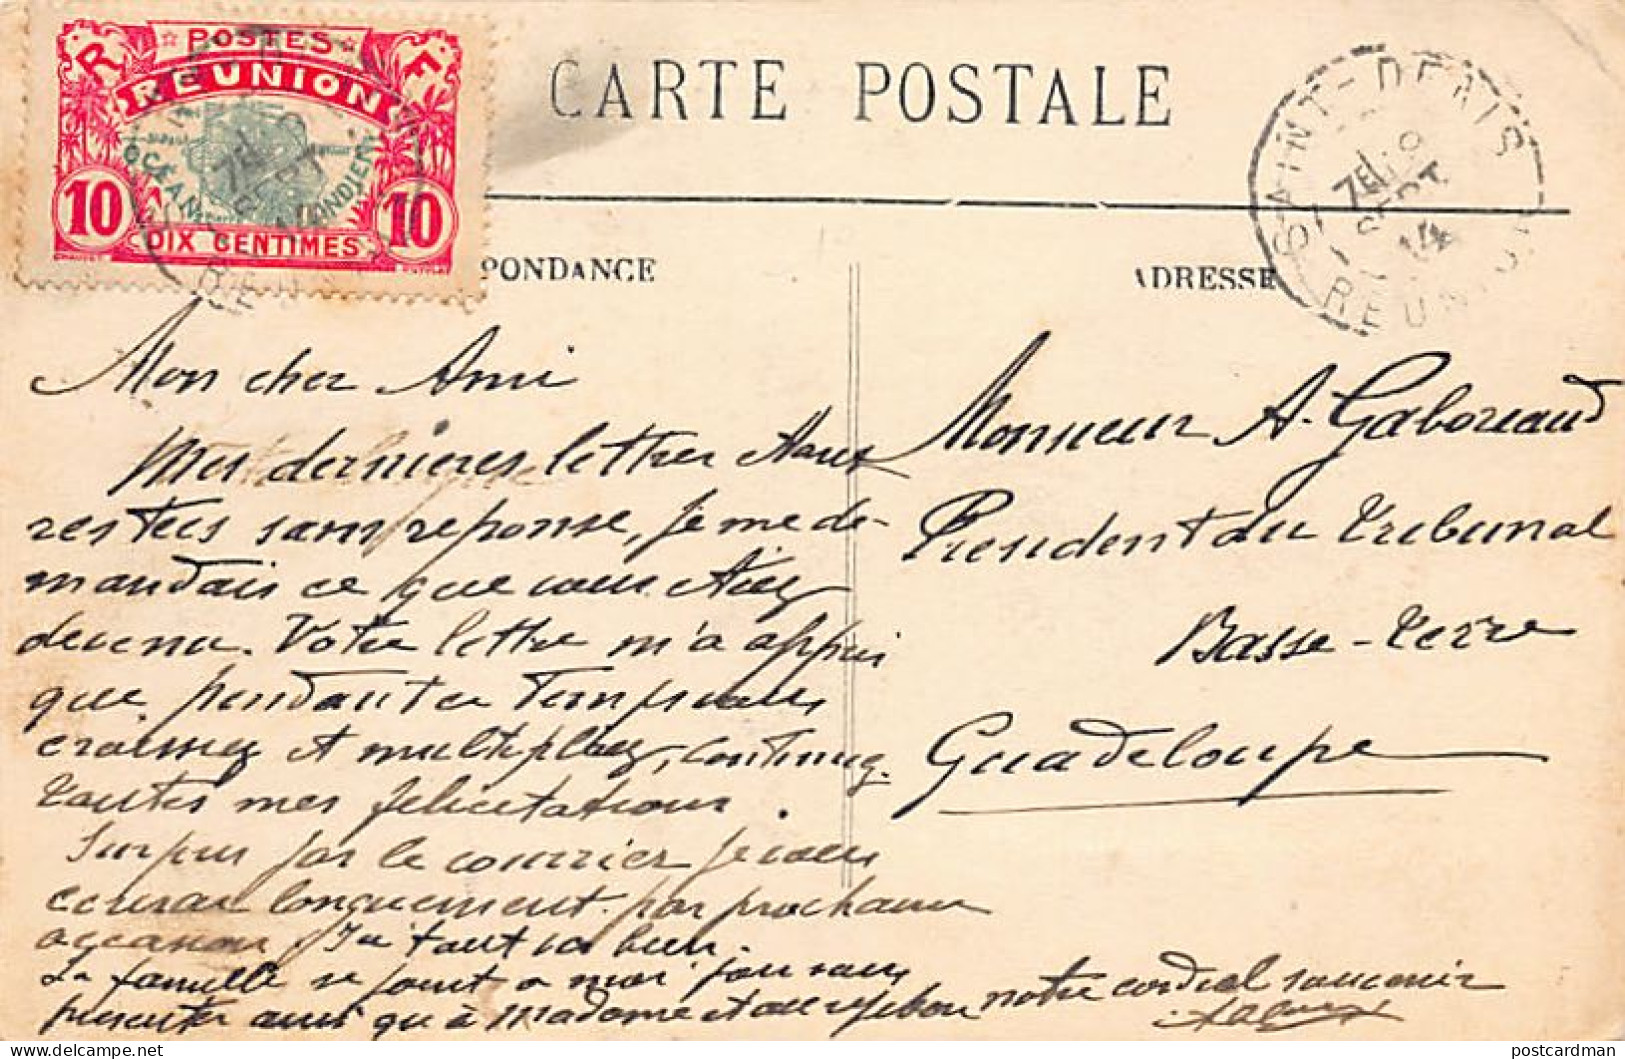 POSTES
R F
REUNION
OCÉAN INDIEN
10 10
DIX CENTIMES
CARTE POSTALE
SAINT-DENIS
SEPT
14
REUNION
PONDANCE
ADRESSE
Mon cher Ami
Mes dernieres lettres étant
restées sans reponse, je me de-
mandais ce que vous étiez
devenu. Votre lettre m'a appris
que pendant ce temps vous
croissiez et multipliiez, continuez.
toutes mes felicitations.
par le courrier je vous
ecrirai longuement par prochaine
occasion. Ici tout va bien.
La famille se joint a moi pour vous
presenter ainsi qu'à Madame et au notre cordial souvenir
Monsieur A. Gaboreaud
President du Tribunal
Basse-Terre
Guadeloupe
postcardman